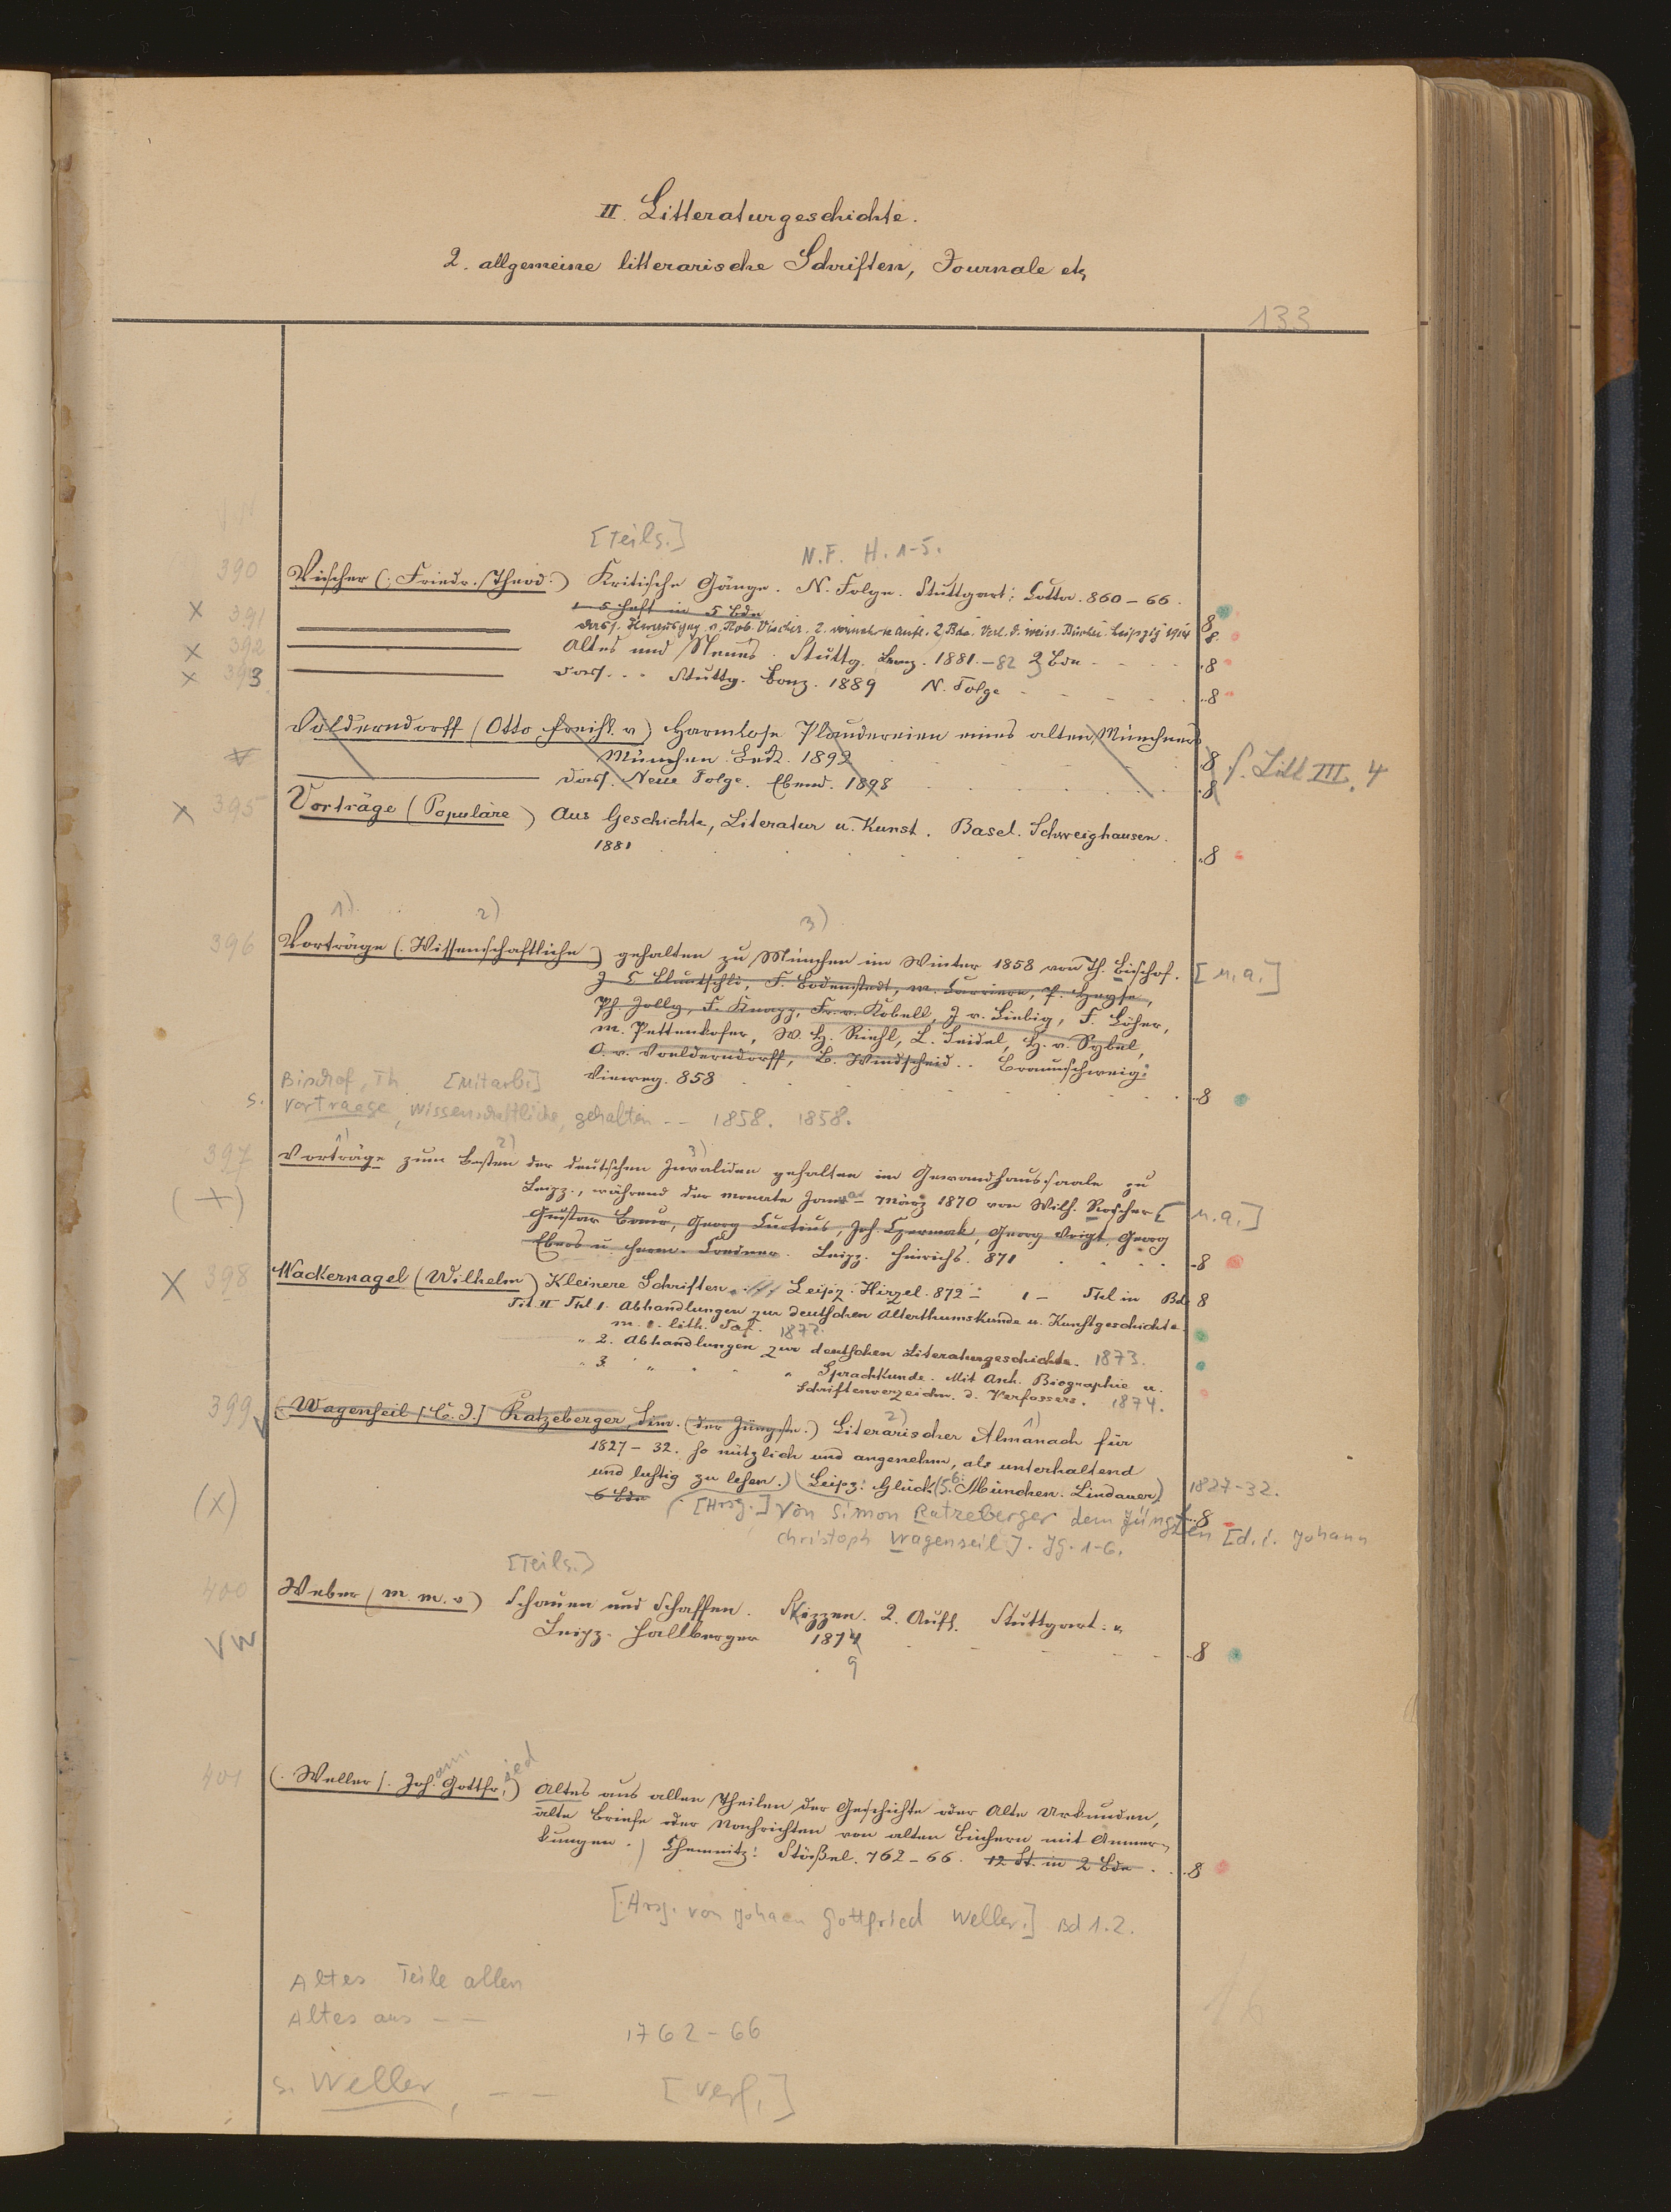 II. Litteraturgeschichte.
2. allgemeine litterarische Schriften, Journale etc
133
[Teils.]
N.F. H. 1-5.
390 Vischer (: Friedr. Theod:) Kritische Gänge. N. Folge. Stuttgart: Cotta. 860-66.
1-5 Heft in 5 Bde 8
X 391 dass. Herausgeg. v. Rob. Vischer. 2. vermehrte Aufl. 2 Bde. Verl. d. weiss. Bücher. Leipzig 1914 8
X 392 Altes und Neues. Stuttg. Bonz. 1881.-82 3 Bde 8
X 393 dass. Stuttg. Bonz. 1889 N. Folge 8
Völderndorff (Otto Freih. v) Harmlose Plaudereien eines alten Münchners
München. Beck. 1892 8
s. Litt III, 4
dass. Neue Folge. Ebend. 1898 8
X 395 Vorträge (Populäre) Aus Geschichte, Literatur u. Kunst. Basel. Schweighausen.
1881 8
1) 2) 3)
396 Vorträge (: Wissenschaftliche) gehalten zu München im Winter 1858 von Th. Bischof. [u.a.]
J C Bluntschli, F. Bodenstedt, M. Carriere, P. Heyse,
Ph. Jolly, F. Knapp, Fr. v. Kobell, J v. Liebig, F. Löher,
M. Pettenkofer, W. H. Riehl, L. Seidel, H. v. Sybel,
O. v. Voelderndorff, B. Windscheid.. Braunschweig:
Vieweg. 858 8
Bischof, Th [Mitarb.]
s. Vortraege, wissenschaftliche, gehalten -- 1858. 1858.
1) 2) 3)
397 Vorträge zum Besten der deutschen Invaliden gehalten im Gewandhaussaale zu
(X) Leipz., während der Monate Januar - März 1870 von Wilh. Roscher [u.a.]
Gustav Baur, Georg Curtius, Joh. Czermak, Georg Voigt, Georg
Ebers u. Herm. Credner. Leipz. Hinrichs. 871 8
X 398 Wackernagel (Wilhelm) Kleinere Schriften. Leipz. Hirzel. 872- 1 - Thl in Bde 8
Thl 1. Abhandlungen zur deutschen Alterthumskunde u. Kunstgeschichte
m. 1. lith. Taf. 1872.
" 2. Abhandlungen zur deutschen Literaturgeschichte. 1873.
" 3. " " " Sprachkunde. Mit Anh. Biographie u.
Schriftenverzeichn. d. Verfassers. 1874.
2) 1)
399 (: Wagenseil [C. J.] Ratzeberger, Sim. (der Jüngste.) Literarischer Almanach für
1827-32. so nützlich und angenehm, als unterhaltend
und lustig zu lesen.) Leipz: Glück (5. 6: München. Lindauer) 1827-32.
6 Bde 8
(X) [Hrsg.] Von Simon Ratzeberger dem Jüngsten [d.i. Johann
Christoph Wagenseil]. Jg. 1-6.
[Teils.]
400 Weber (M. M. v) Schauen und Schaffen. Skizzen. 2. Aufl. Stuttgart: u
VW Leipz. Hallberger 1874 8
9
401 (: Weller [. Johann Gottfried) Altes aus allen Theilen der Geschichte oder Alte Urkunden,
alte Briefe oder Nachrichten von alten Büchern mit Anmer-
kungen.) Chemnitz: Stößel. 762-66. 12 St. in 2 Bde 8
[Hrsg. von Johann Gottfried Weller.] Bd 1.2.
Altes Teile allen
Altes aus --
1762-66
s. Weller, -- [Verf.]
16